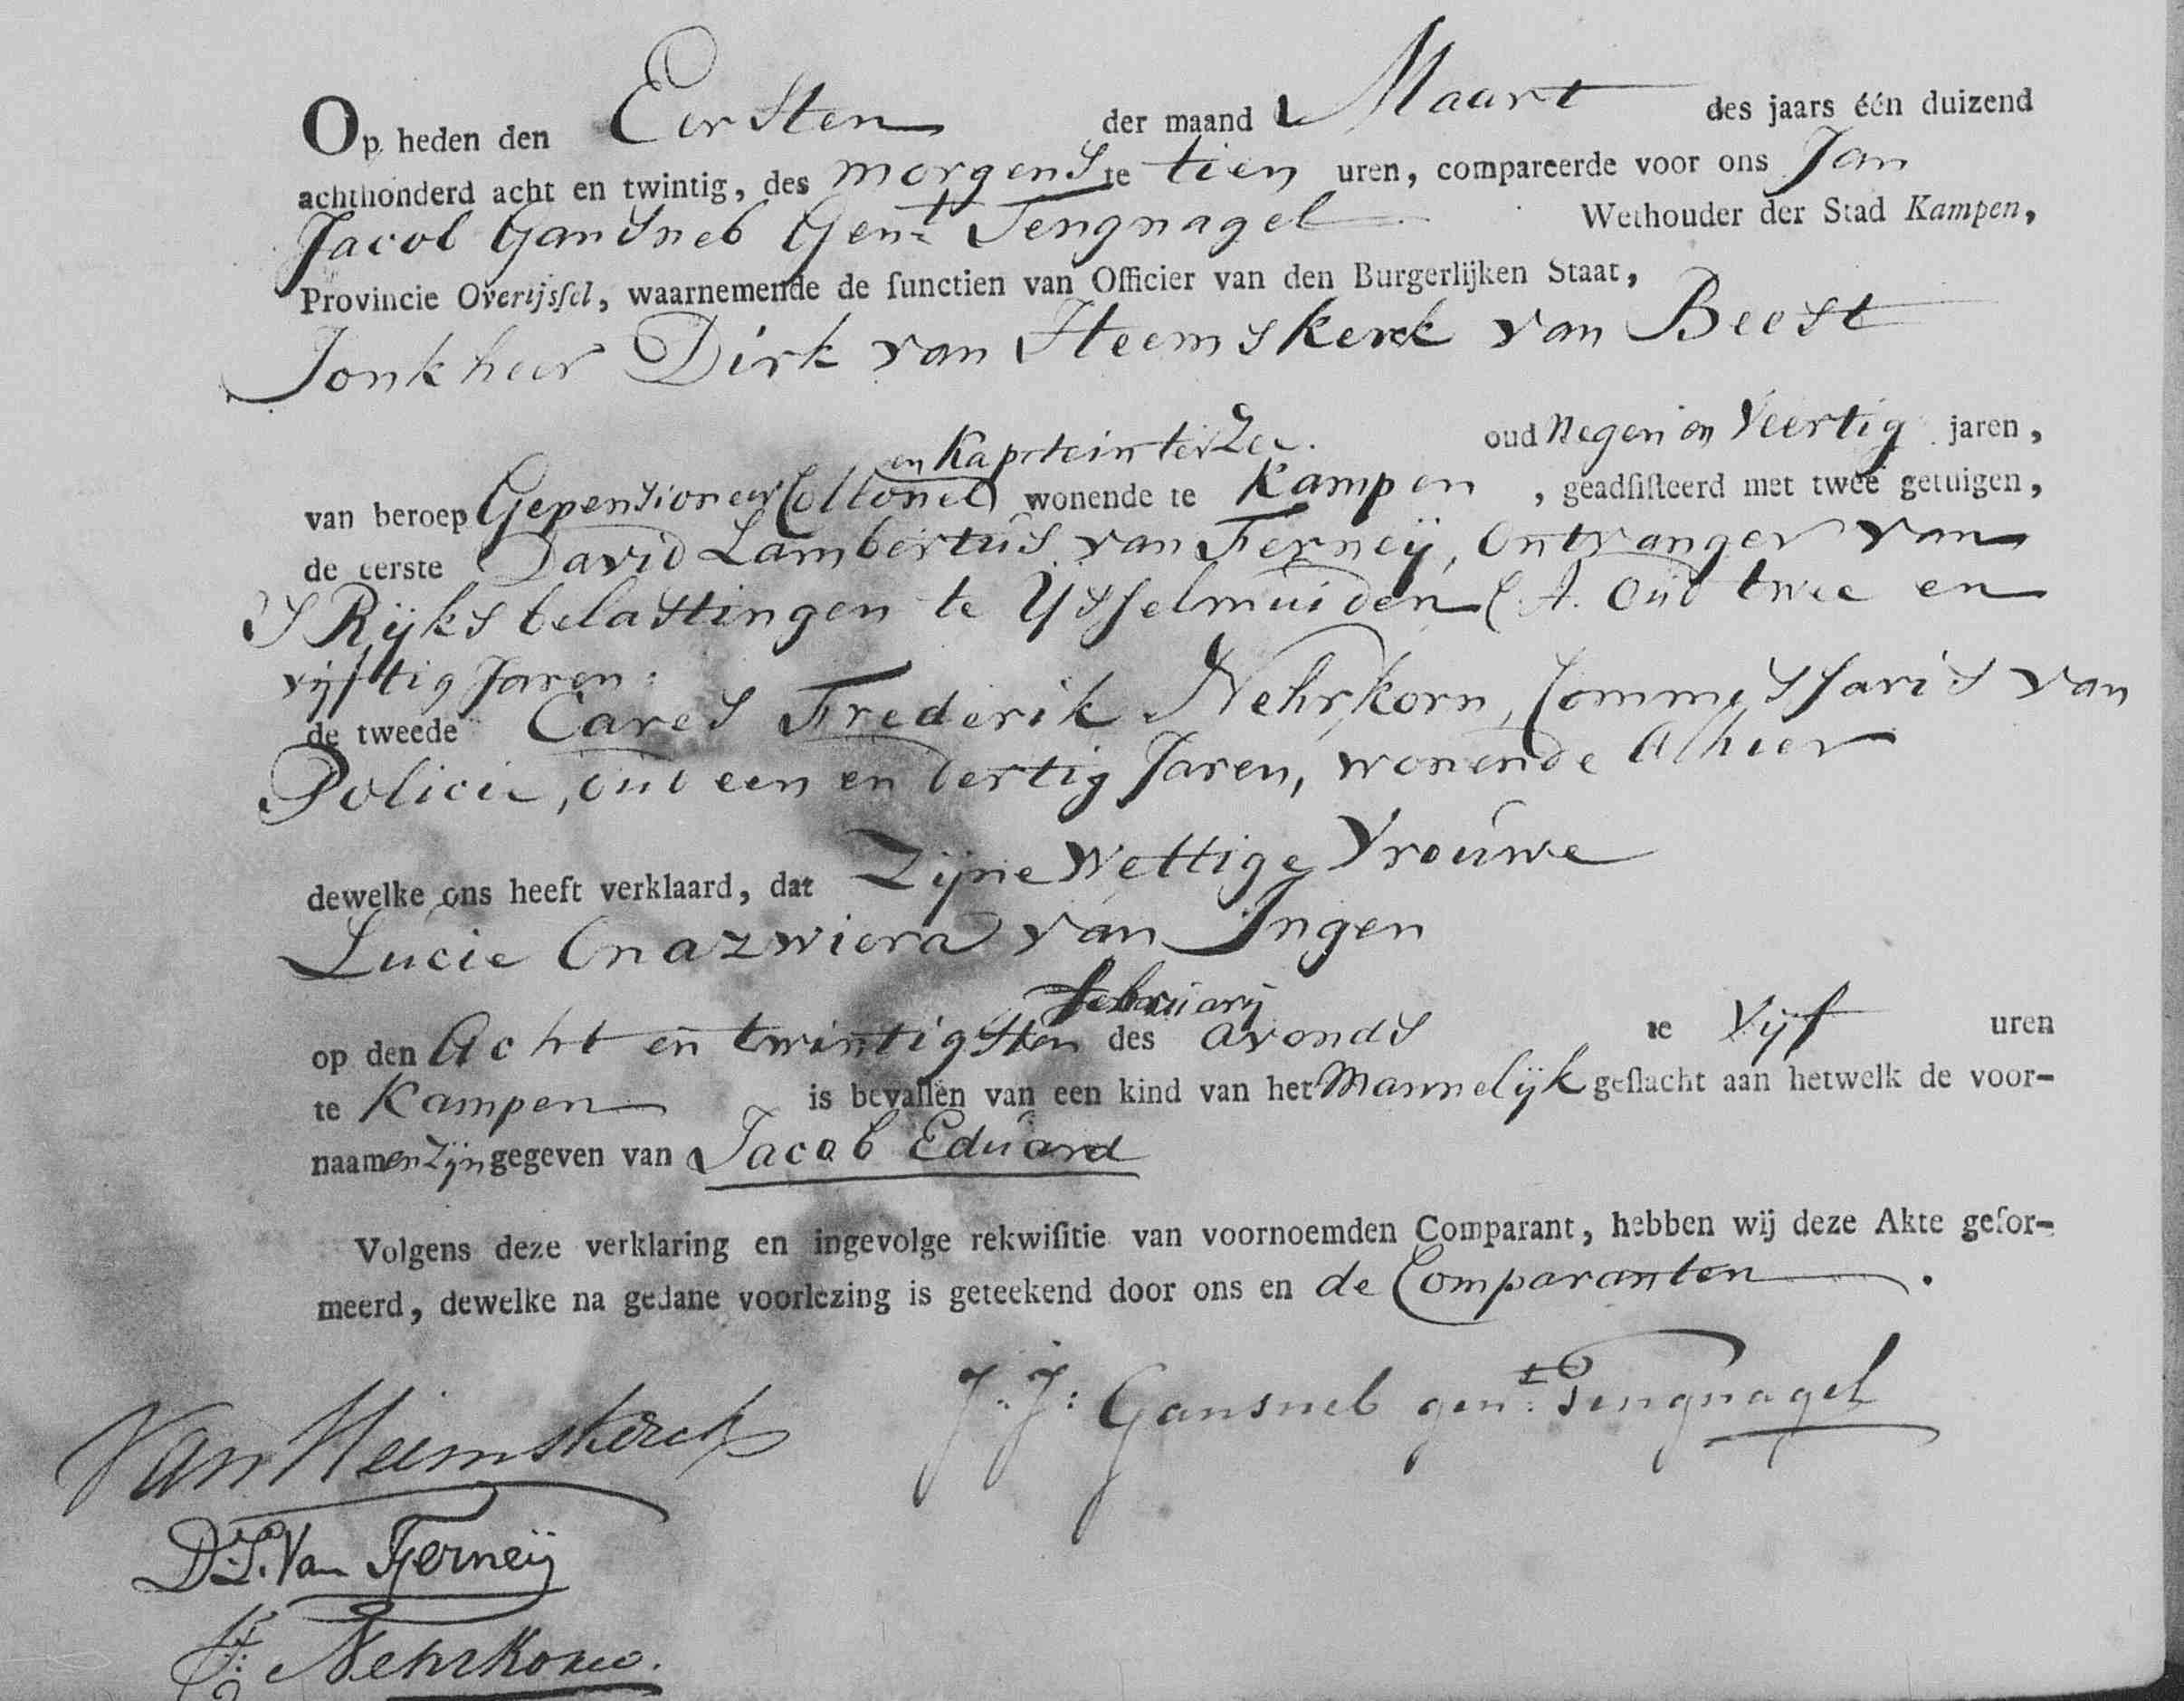 Op heden den Eersten der maand Maart des jaars één duizend
achthonderd acht en twintig, des morgens te tien uren, compareerde voor ons Jan
Jacob Gansneb Gen:t Tengnagel Wethouder der Stad Kampen,
Provincie Overijssel, waarnemende de functien van Officier van den Burgerlijken Staat,
Jonkheer Dirk van Heemskerk van Beest
oud Negen en Veertig jaren,
en Kapitein ter Zee.
van beroep Gepensioneer Collonel wonende te Kampen , geadsisteerd met twee getuigen,
de eerste David Lambertus van Ferneij, Ontvanger van
S Rijks belastingen te IJsselmuiden C.A. Oud twee en
vijftig Jaren:
de tweede Carel Frederik Nehrkorn, Commissaris van
Policie, oud een en dertig Jaren, wonende Alhier
dewelke ons heeft verklaard, dat Zijne Wettige Vrouwe
Lucie Onazwiera van Ingen
februarij
op den Acht en twintigsten des avonds te Vijf uren
te Kampen is bevallen van een kind van het Mannelijk geslacht aan hetwelk de voor-
naamen Zijn gegeven van Jacob Eduard
Volgens deze verklaring en ingevolge rekwisitie van voornoemden Comparant, hebben wij deze Akte gefor-
meerd, dewelke na gedane voorlezing is geteekend door ons en de Comparanten.
J. J: Gansneb gen:t Tengnagel
Van Heemskerck
D.L. Van Ferneij
F: Nehrkorn.